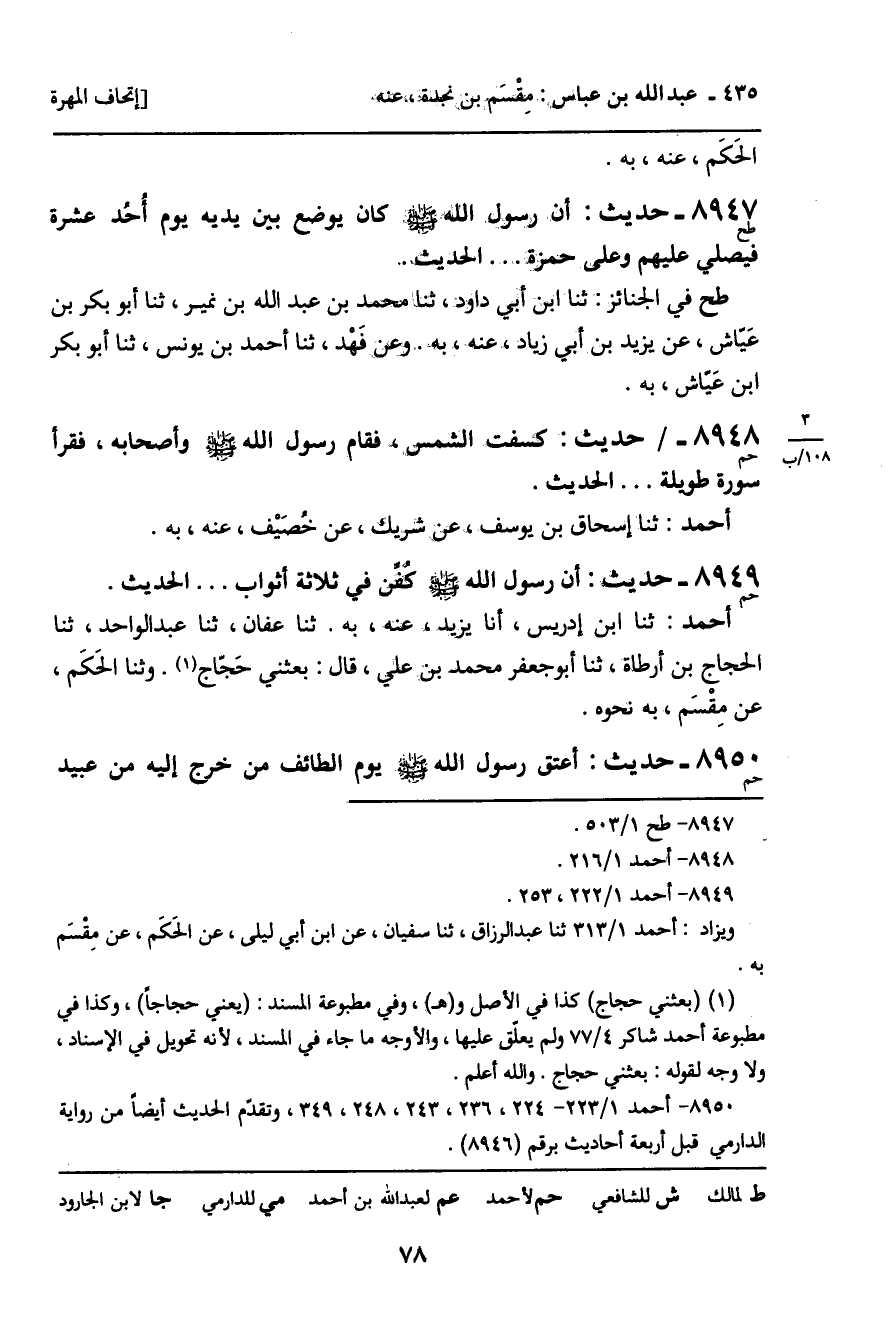 ٤٣٥ ـ عبدالله بن عباس : مِقْسَم بن نجدة ، عنه [إتحاف المهرة
الحَكَم ، عنه ، به .
٨٩٤٧ ـ حديث : أن رسول الله ﷺ كان يوضع بين يديه يوم أُحُد عشرة
طح
فيصلي عليهم وعلى حمزة . . . الحديث .
طح في الجنائز : ثنا ابن أبي داود ، ثنا محمد بن عبد الله بن نمير ، ثنا أبو بكر بن
عَيّاش ، عن يزيد بن أبي زياد ، عنه ، به . وعن فَهْد ، ثنا أحمد بن يونس ، ثنا أبو بكر
ابن عَيّاش ، به .
٨٩٤٨ ـ / حديث : كسفت الشمس ، فقام رسول الله ﷺ وأصحابه ، فقرأ
حم
٣
١٠٨/ب
سورة طويلة . . . الحديث .
أحمد : ثنا إسحاق بن يوسف ، عن شريك ، عن خُصَيْف ، عنه ، به .
٨٩٤٩ ـ حديث : أن رسول الله ﷺ كُفِّن في ثلاثة أثواب . . . الحديث .
حم
أحمد : ثنا ابن إدريس ، أنا يزيد ، عنه ، به . ثنا عفان ، ثنا عبدالواحد ، ثنا
الحجاج بن أرطاة ، ثنا أبوجعفر محمد بن علي ، قال : بعثني حَجّاج(١) . وثنا الحَكَم ،
عن مِقْسَم ، به نحوه .
٨٩٥٠ ـ حديث : أعتق رسول الله ﷺ يوم الطائف من خرج إليه من عبيد
حم
٨٩٤٧– طح ٥٠٣/١ .
٨٩٤٨– أحمد ٢١٦/١ .
٨٩٤٩– أحمد ٢٢٢/١ ، ٢٥٣ .
ويزاد : أحمد ٣١٣/١ ثنا عبدالرزاق ، ثنا سفيان ، عن ابن أبي ليلى ، عن الحَكَم ، عن مِقْسَم
به .
(١) (بعثني حجاج) كذا في الأصل و(هـ) ، وفي مطبوعة المسند : (يعني حجاجاً) ، وكذا في
مطبوعة أحمد شاكر ٧٧/٤ ولم يعلّق عليها ، والأوجه ما جاء في المسند ، لأنه تحويل في الإسناد ،
ولا وجه لقوله : بعثني حجاج . والله أعلم .
٨٩٥٠– أحمد ٢٢٣/١– ٢٢٤ ، ٢٣٦ ، ٢٤٣ ، ٢٤٨ ، ٣٤٩ ، وتقدّم الحديث أيضاً من رواية
الدارمي قبل أربعة أحاديث برقم (٨٩٤٦) .
ط لمالك ش للشافعي حم لأحمد عم لعبدالله بن أحمد مي للدارمي جا لابن الجارود
٧٨